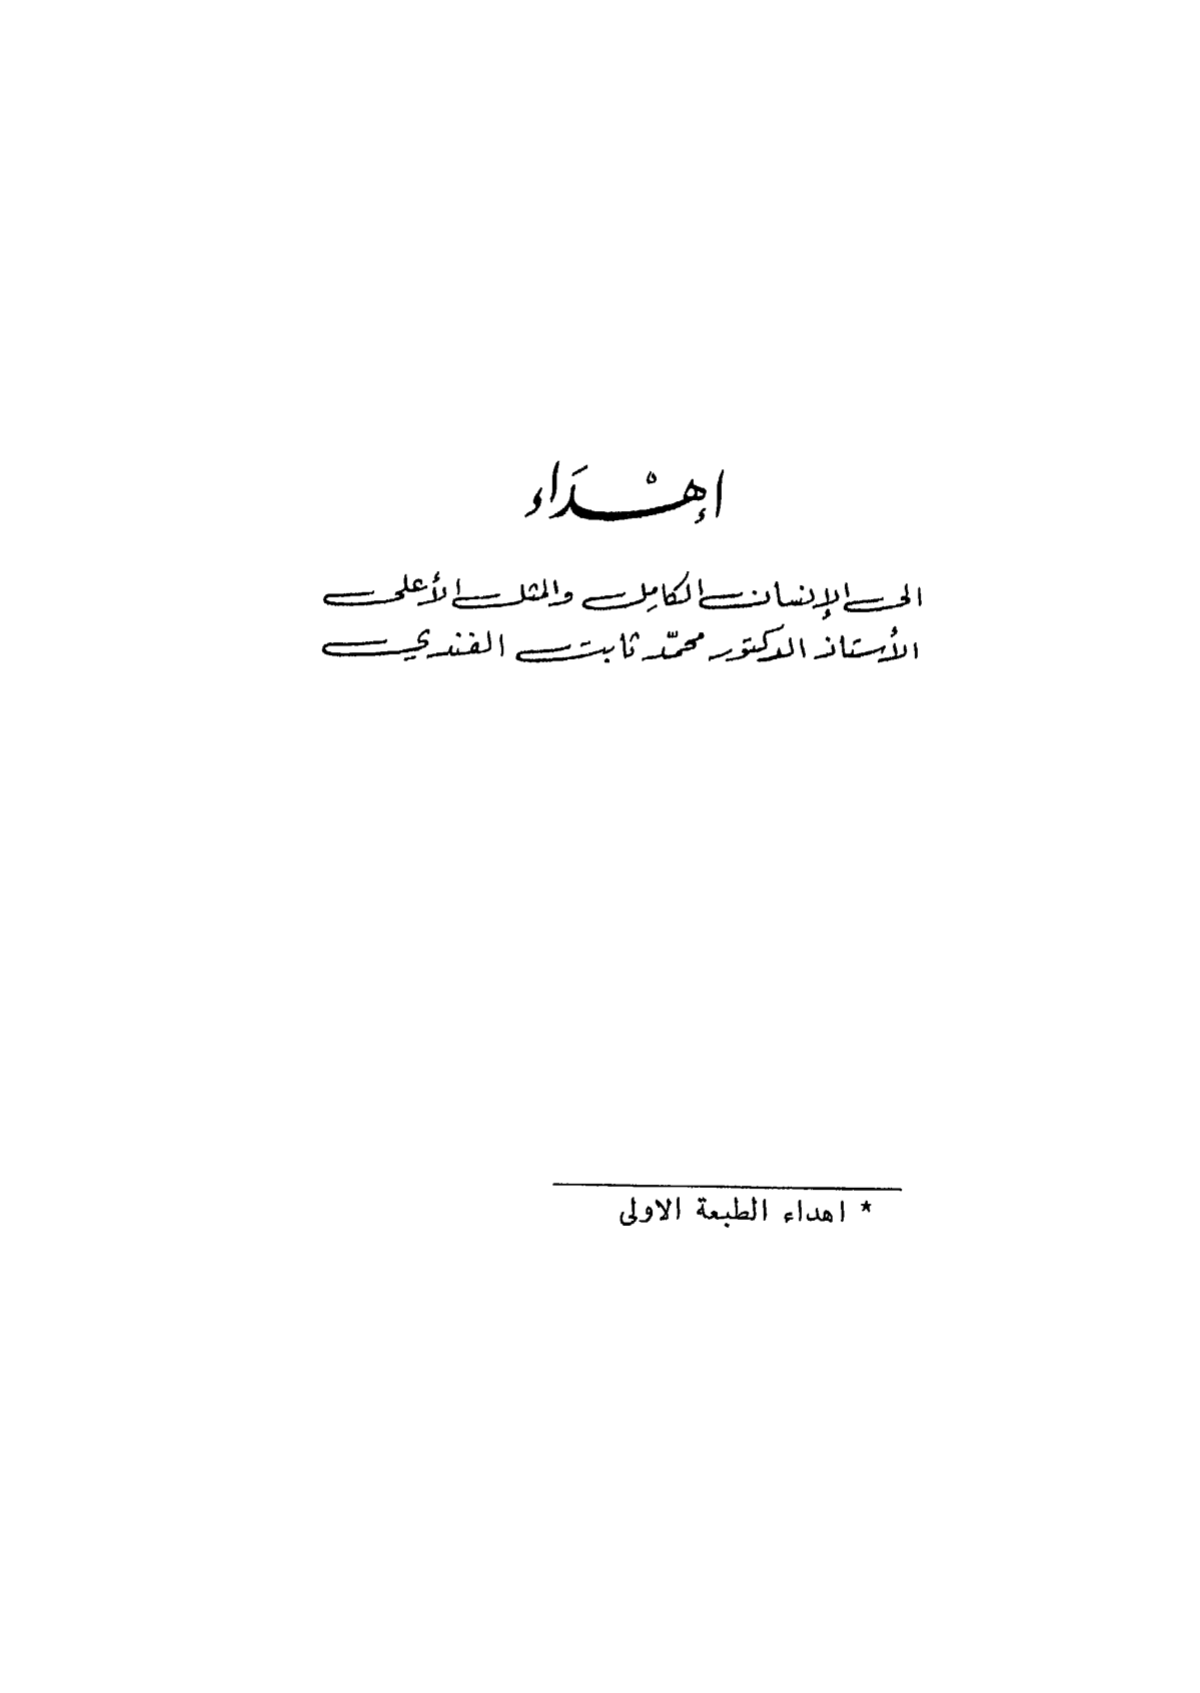 إهْدَاء
الى الإنسان الكامِل والمثل الأعلى
الأستاذ الدكتور محمّد ثابت الفندي
* اهداء الطبعة الاولى